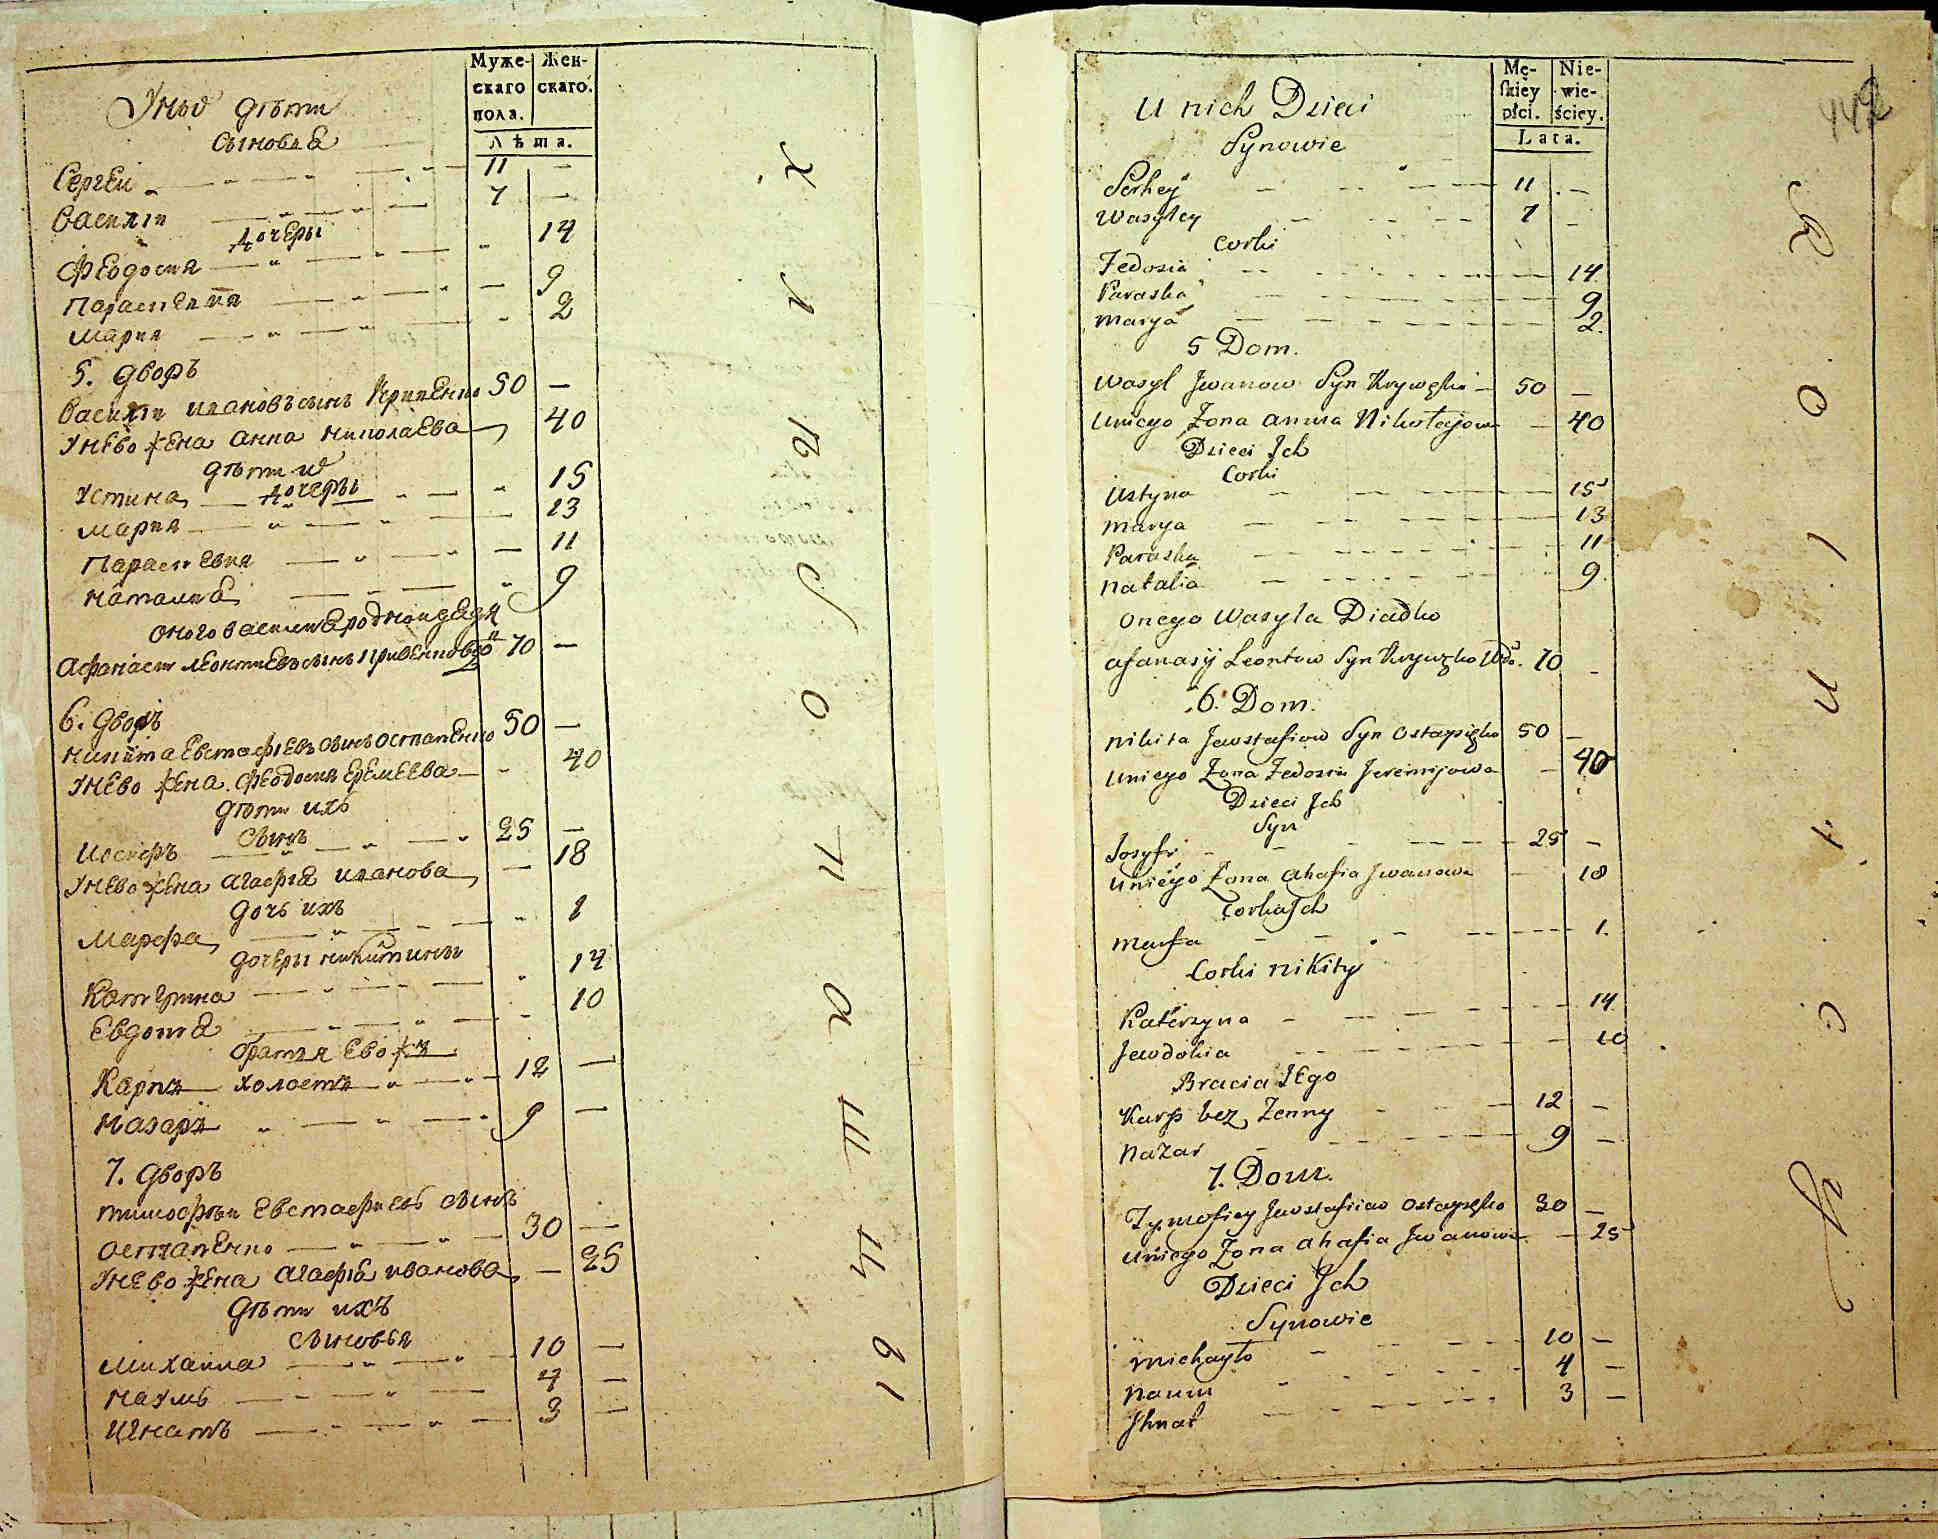 Муже-
скаго
пола.
Жен-
скаго.
Лѣта.
Унихъ дѣти
Сыновья
Сергей 11 —
Василiи 7 —
Дочеры
Феодосия 14
Параскевия 9
Мария 2
5. дворъ
Василiи ивановъ сынъ Кривенко 50 —
Унево жена анна николаева 40
дѣти ихъ
Дочеры
Устина 15
Мария 13
Параскевия 11
Наталия 9
оного василия родной дядя
афанасiи леонтиевъ сынъ кривенко вдо 70 —
6. дворъ
никита Евстафиевъ сынъ остапенко 50 —
Унево жена феодосия Еремеева 40
дѣти ихъ
Сынъ
иосифъ 25 —
Унево жена агафiя иванова 18
дочь ихъ
Марфа 1
дочеры никитины
Катерина 14
Евдотия 10
братья Ево
Карпъ холостъ 12 —
Назаръ 9 —
7. дворъ
тимофеи Евстафиевъ сынъ
остапенко 30 —
Унево жена агафiя иванова — 25
дѣти ихъ
Сыновья
михаила 10 —
наумъ 4 —
игнатъ 3 —
Mę-
skiey
płci.
Nie-
wie-
ściey.
Lata.
442
U nich Dzieci
Synowie
Serhey 11 —
Wasyley 7 —
Corki
Fedosia 14
Paraska 9
Marya 2.
5 Dom.
Wasyl Jwanow Syn Krywęko 50 —
Uniego Zona anna Nikołajowa — 40
Dzieci Jch
Corki
Ustyna 15
Marya 13
Paraska 11
Natalia 9.
onego Wasyla Diadko
afanasij Leontow Syn Krywęko Wdo. 70 —
6. Dom.
Nikita Jewstafiow Syn Ostapęko 50 —
Uniego Zona Fedosia Jeremijowa — 40
Dzieci Jch
Syn
Josyf 25 —
Uniego Zona ahafia Jwanowa 18
Corka Jch
Marfa 1.
Corki Nikity
Katerzyna 14
Jewdokia 10
Bracia Jego
Karp bez Zenny 12 —
Nazar 9 —
7. Dom.
Tymofiey Jewstafiiow Ostapęko 30 —
Uniego Zona ahafia Jwanowa — 25
Dzieci Jch
Synowie
Michayło 10 —
Naum 4 —
Jhnat 3 —